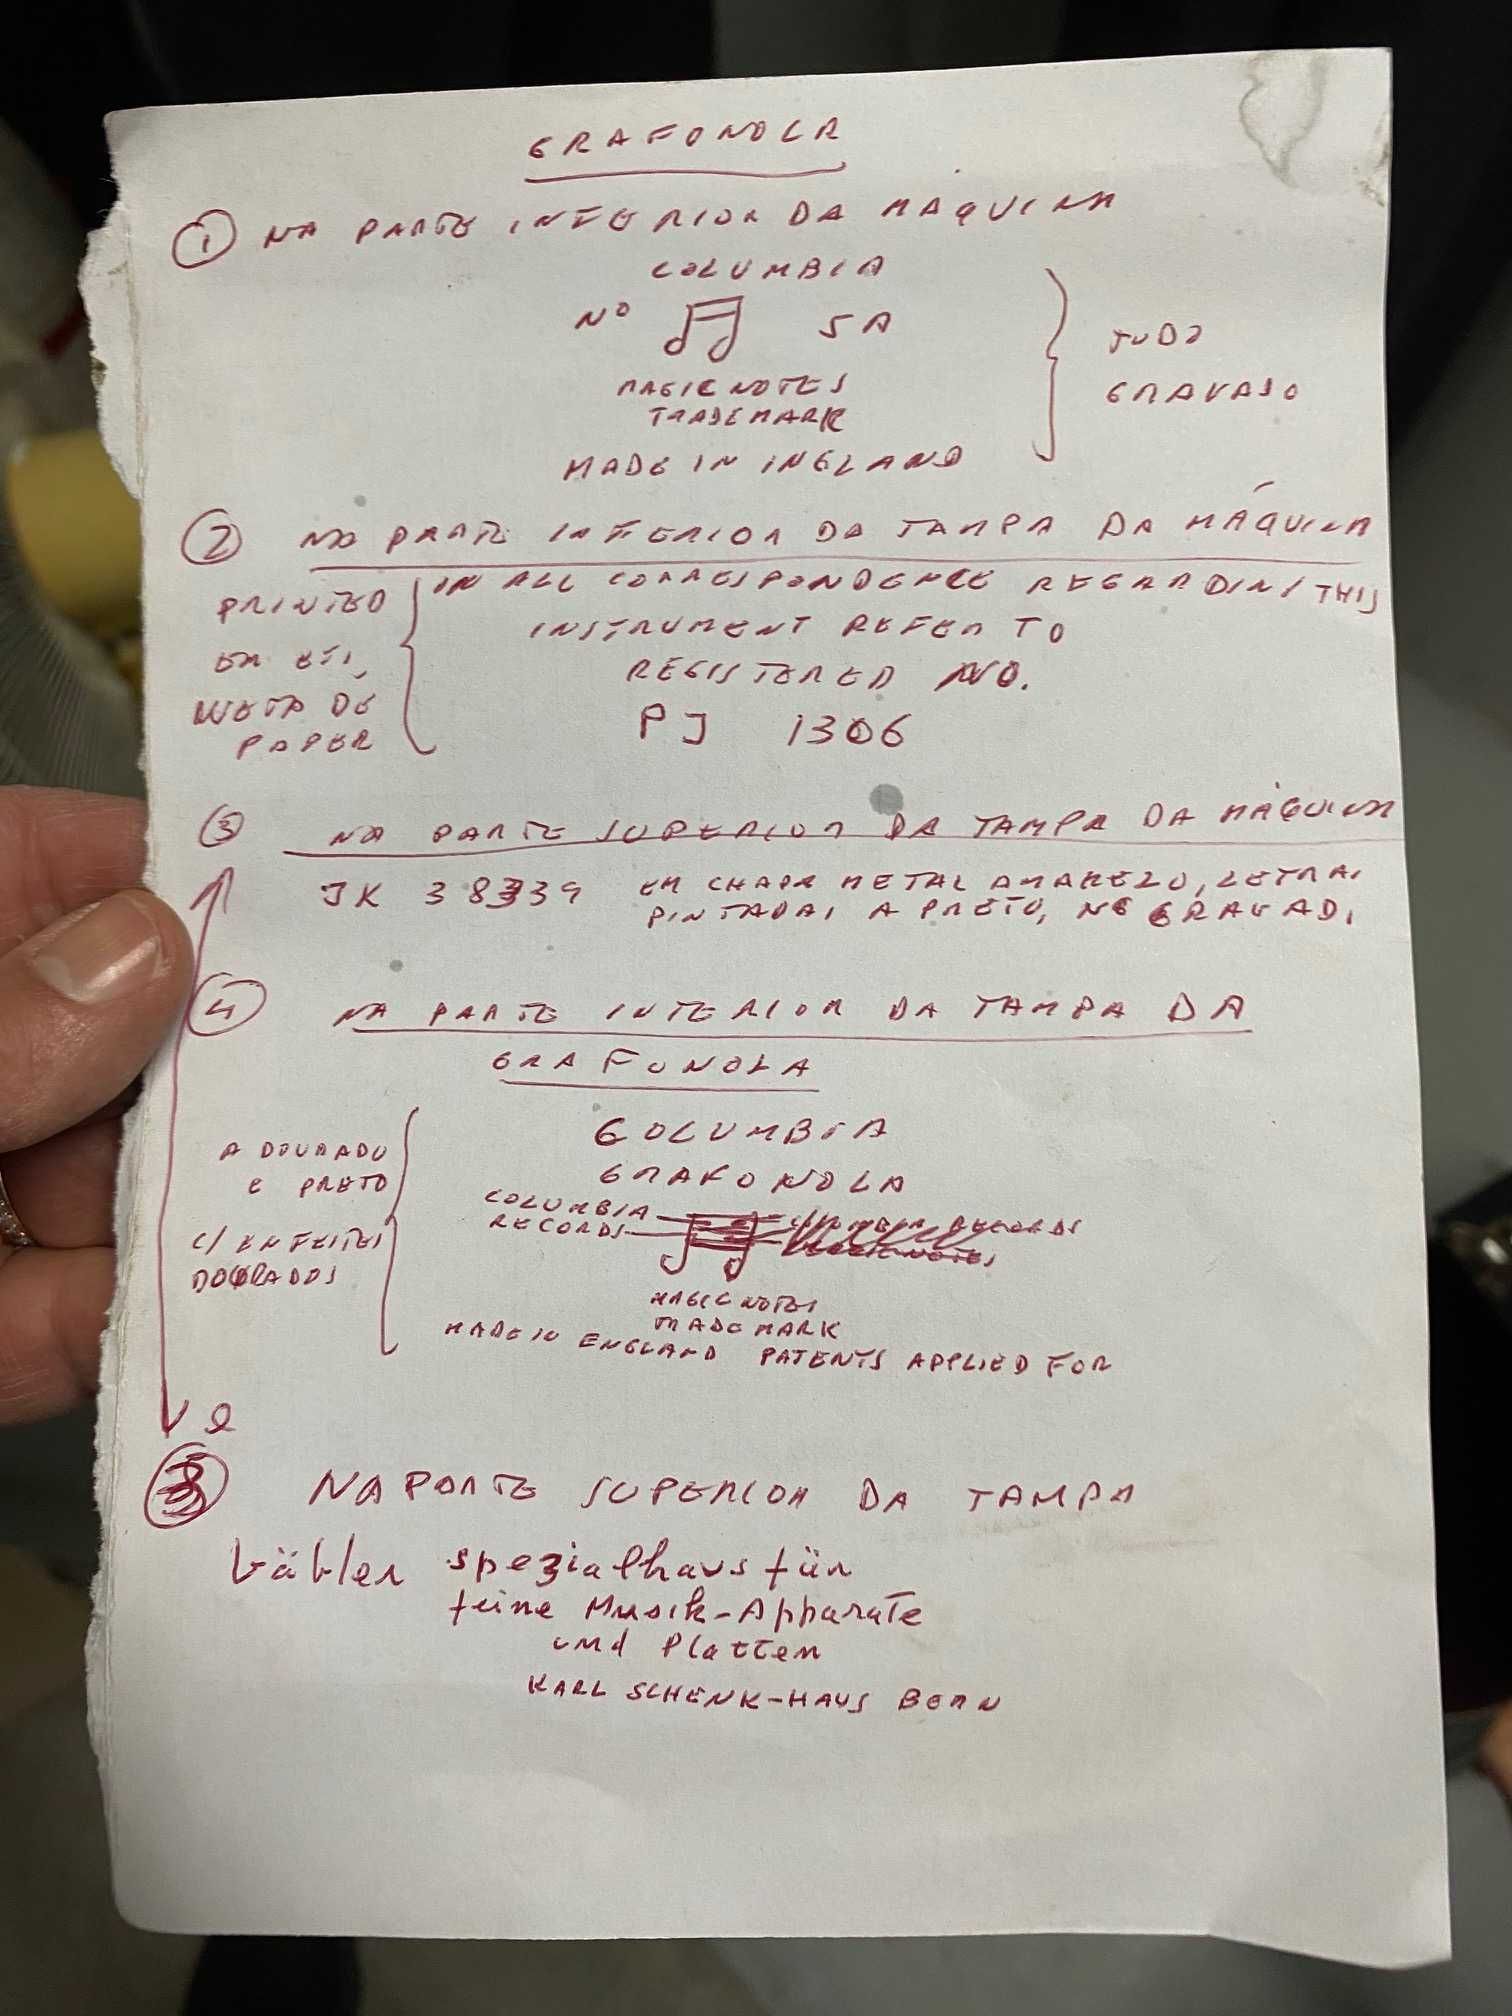 GRAFONOLA
1 NA PARTE INFERIOR DA MÁQUINA
COLUMBIA
Nº ♫ 5A
MAGIC NOTES
TRADEMARK
MADE IN INGLAND
TUDO
GRAVADO
2 NA PARTE INFERIOR DA TAMPA DA MÁQUINA
PRINTED
EM ETI,
QUETA DE
PAPER
IN ALL CORRESPONDENCE REGARDING THIS
INSTRUMENT REFER TO
REGISTERED NO.
PJ 1306
3 NA PARTE SUPERIOR DA TAMPA DA MÁQUINA
JK 38339 EM CHAPA METAL AMARELO, LETRAS
PINTADAS A PRETO, NÃO GRAVAD,
4 NA PARTE INTERIOR DA TAMPA DA
GRAFONOLA
A DOURADO
E PRETO
C/ ENFEITES
DOURADOS
COLUMBIA
GRAFONOLA
COLUMBIA
RECORDS
MAGIC NOTES
TRADEMARK
MADE IN ENGLAND PATENTS APPLIED FOR
e
NA PARTE SUPERIOR DA TAMPA
spezialhaus für
feine Musik-Apparate
und Platten
KARL SCHENK-HAUS BERN